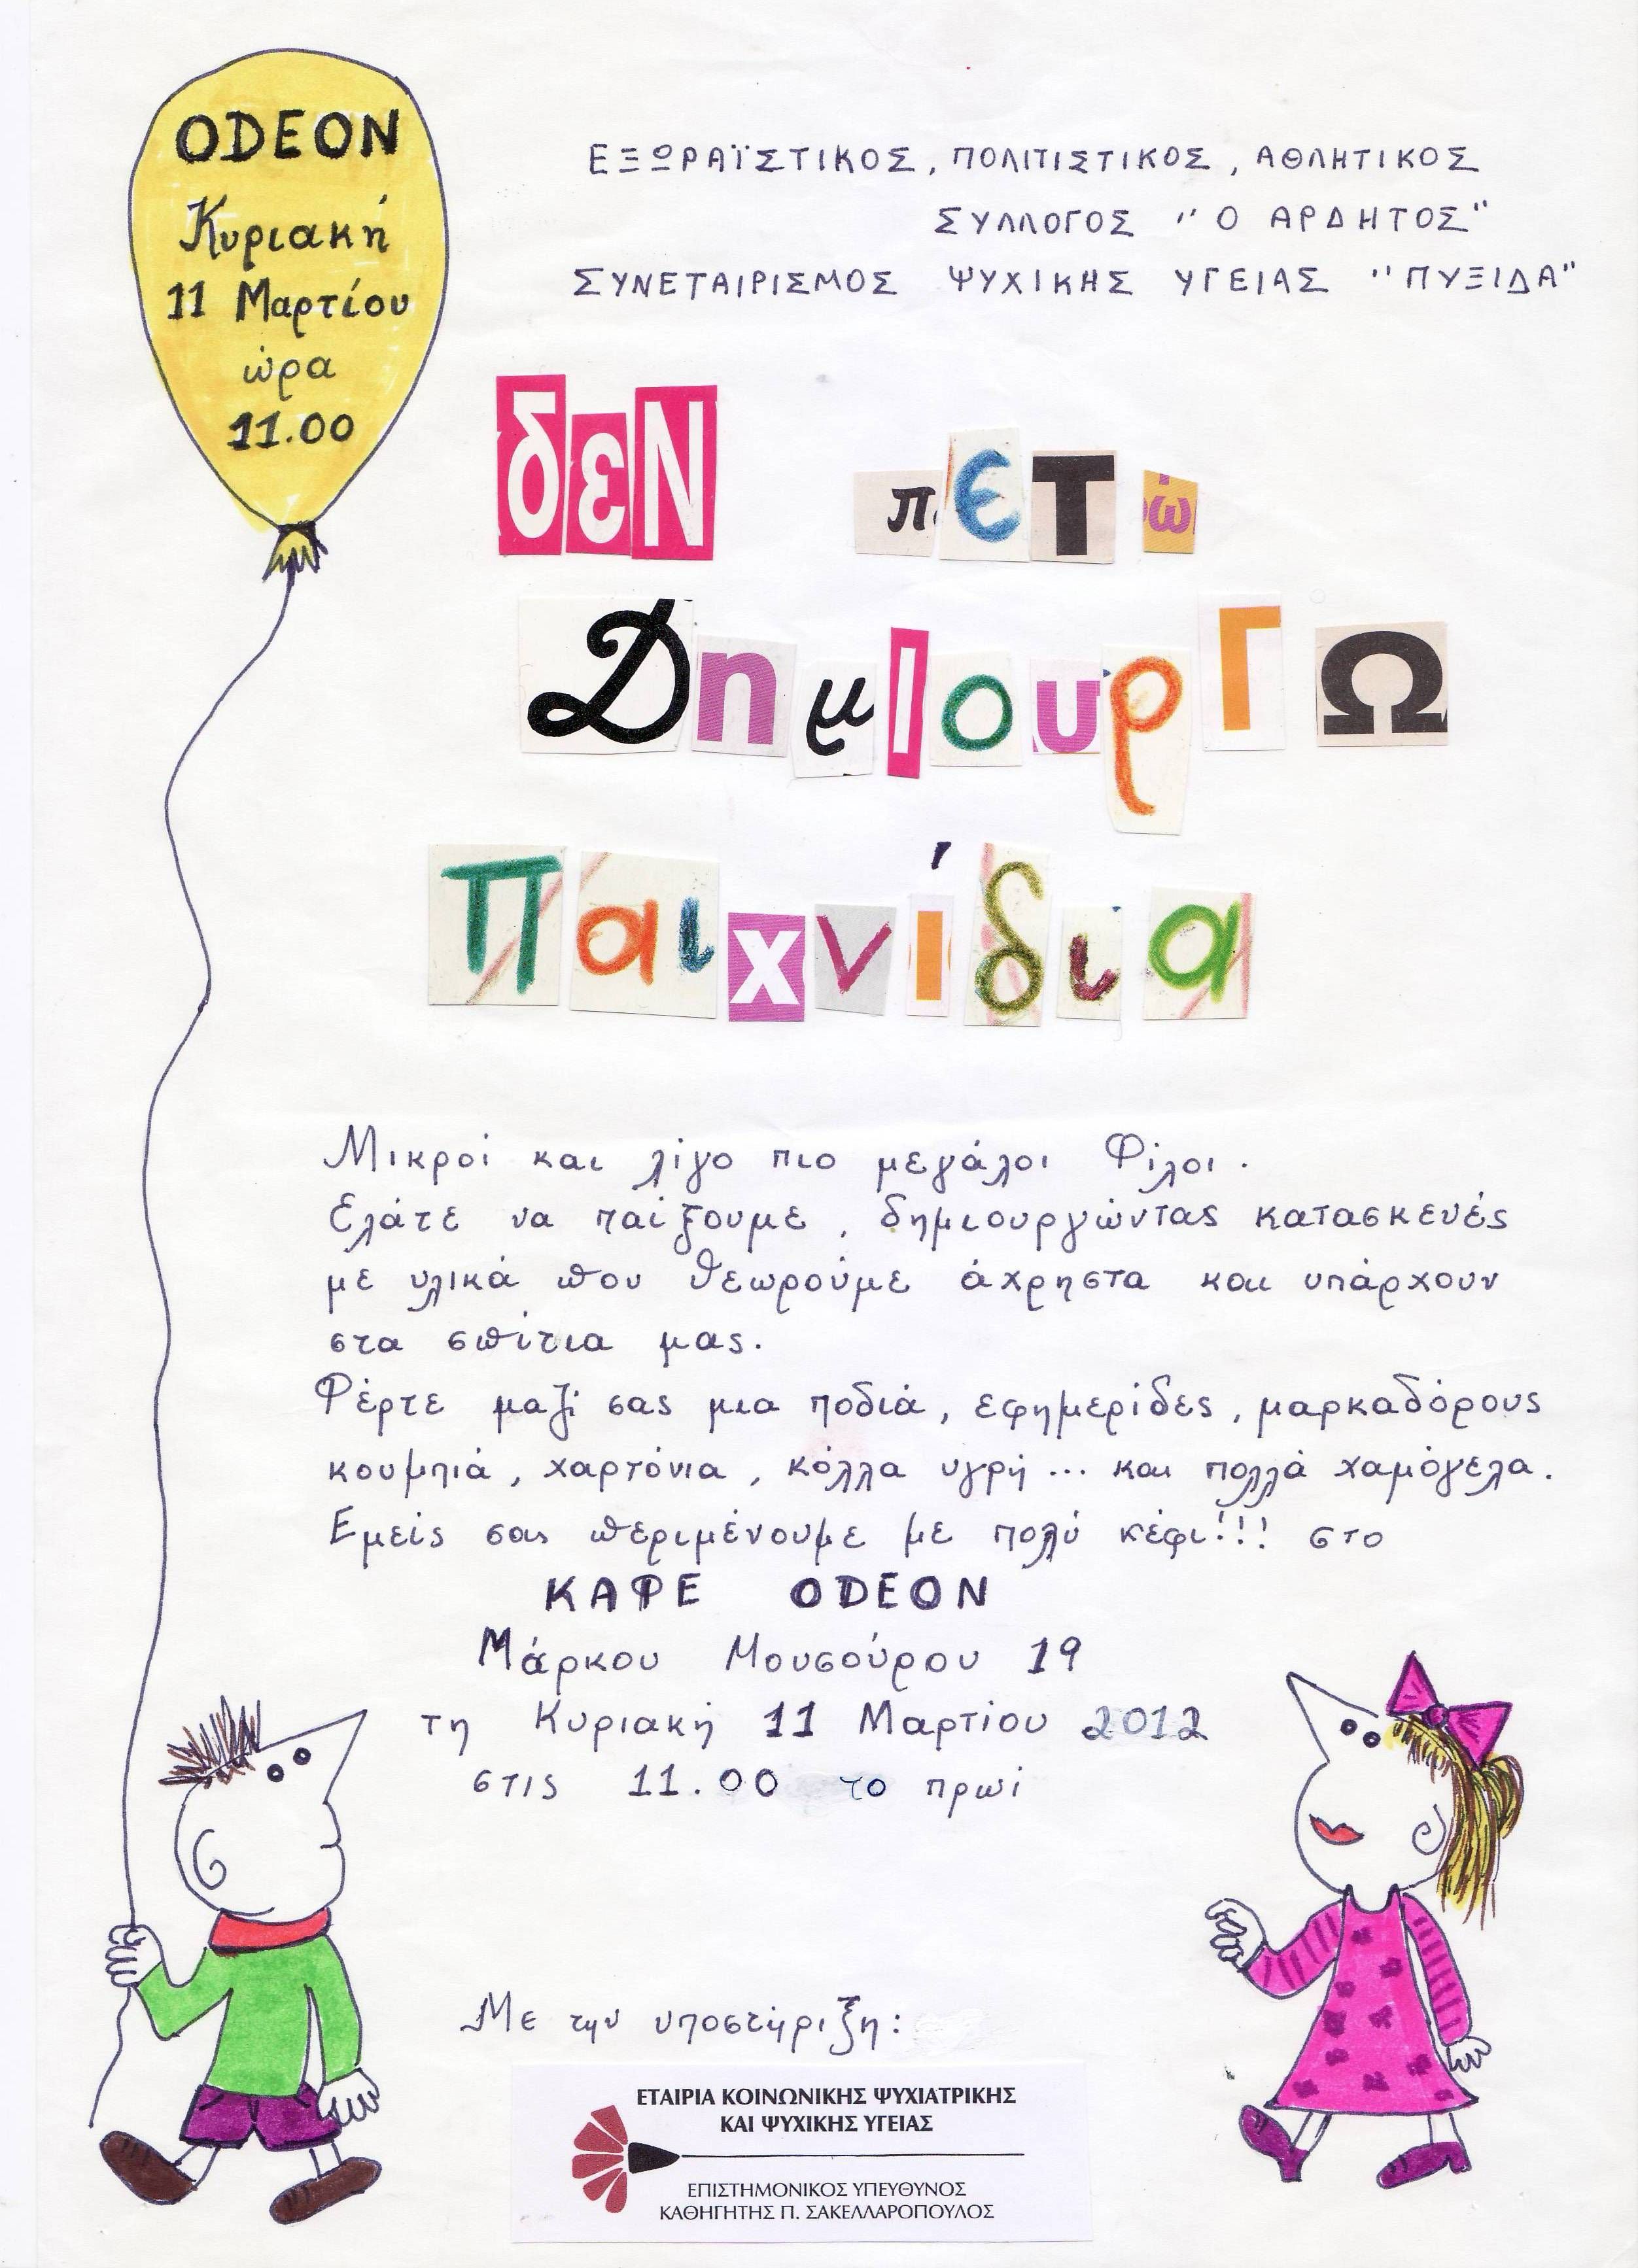 ODEON
Κυριακή
11 Μαρτίου
ώρα
11.00
ΕΞΩΡΑΪΣΤΙΚΟΣ, ΠΟΛΙΤΙΣΤΙΚΟΣ, ΑΘΛΗΤΙΚΟΣ
ΣΥΛΛΟΓΟΣ "Ο ΑΡΔΗΤΟΣ"
ΣΥΝΕΤΑΙΡΙΣΜΟΣ ΨΥΧΙΚΗΣ ΥΓΕΙΑΣ "ΠΥΞΙΔΑ"
δεΝ πετώ
ΔημιουρΓΩ
Παιχνίδια
Μικροί και λίγο πιο μεγάλοι Φίλοι.
Ελάτε να παίξουμε, δημιουργώντας κατασκευές
με υλικά που θεωρούμε άχρηστα και υπάρχουν
στα σπίτια μας.
Φέρτε μαζί σας μια ποδιά, εφημερίδες, μαρκαδόρους
κουμπιά, χαρτόνια, κόλλα υγρή... και πολλά χαμόγελα.
Εμείς σας περιμένουμε με πολύ κέφι!!! στο
ΚΑΦΕ ODEON
Μάρκου Μουσούρου 19
τη Κυριακή 11 Μαρτίου 2012
στις 11.00 το πρωί
Με την υποστήριξη:
ΕΤΑΙΡΙΑ ΚΟΙΝΩΝΙΚΗΣ ΨΥΧΙΑΤΡΙΚΗΣ
ΚΑΙ ΨΥΧΙΚΗΣ ΥΓΕΙΑΣ
ΕΠΙΣΤΗΜΟΝΙΚΟΣ ΥΠΕΥΘΥΝΟΣ
ΚΑΘΗΓΗΤΗΣ Π. ΣΑΚΕΛΛΑΡΟΠΟΥΛΟΣ